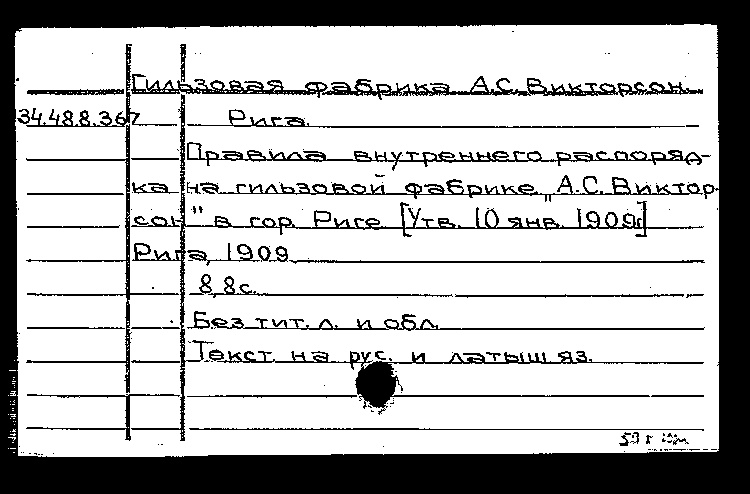 Гильзовая фабрика А.С. Викторсон.
34.48.8.367 Рига.
Правила внутреннего распоряд-
ка на гильзовой фабрике „А.С. Виктор-
сон" в гор Риге [Утв. 10 янв. 1909г.]
Рига, 1909
8, 8 с.
Без тит. л. и обл.
Текст на рус. и латыш яз.